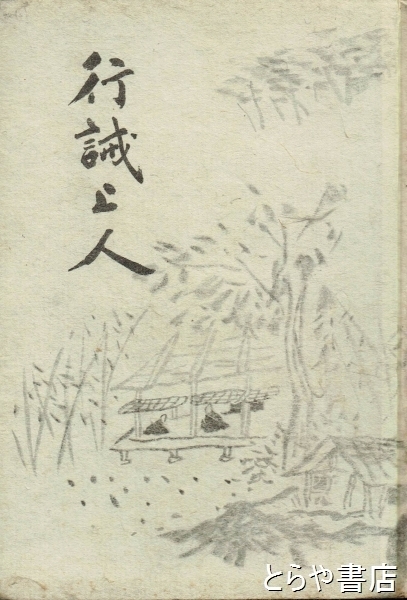 行誡上人
とらや書店